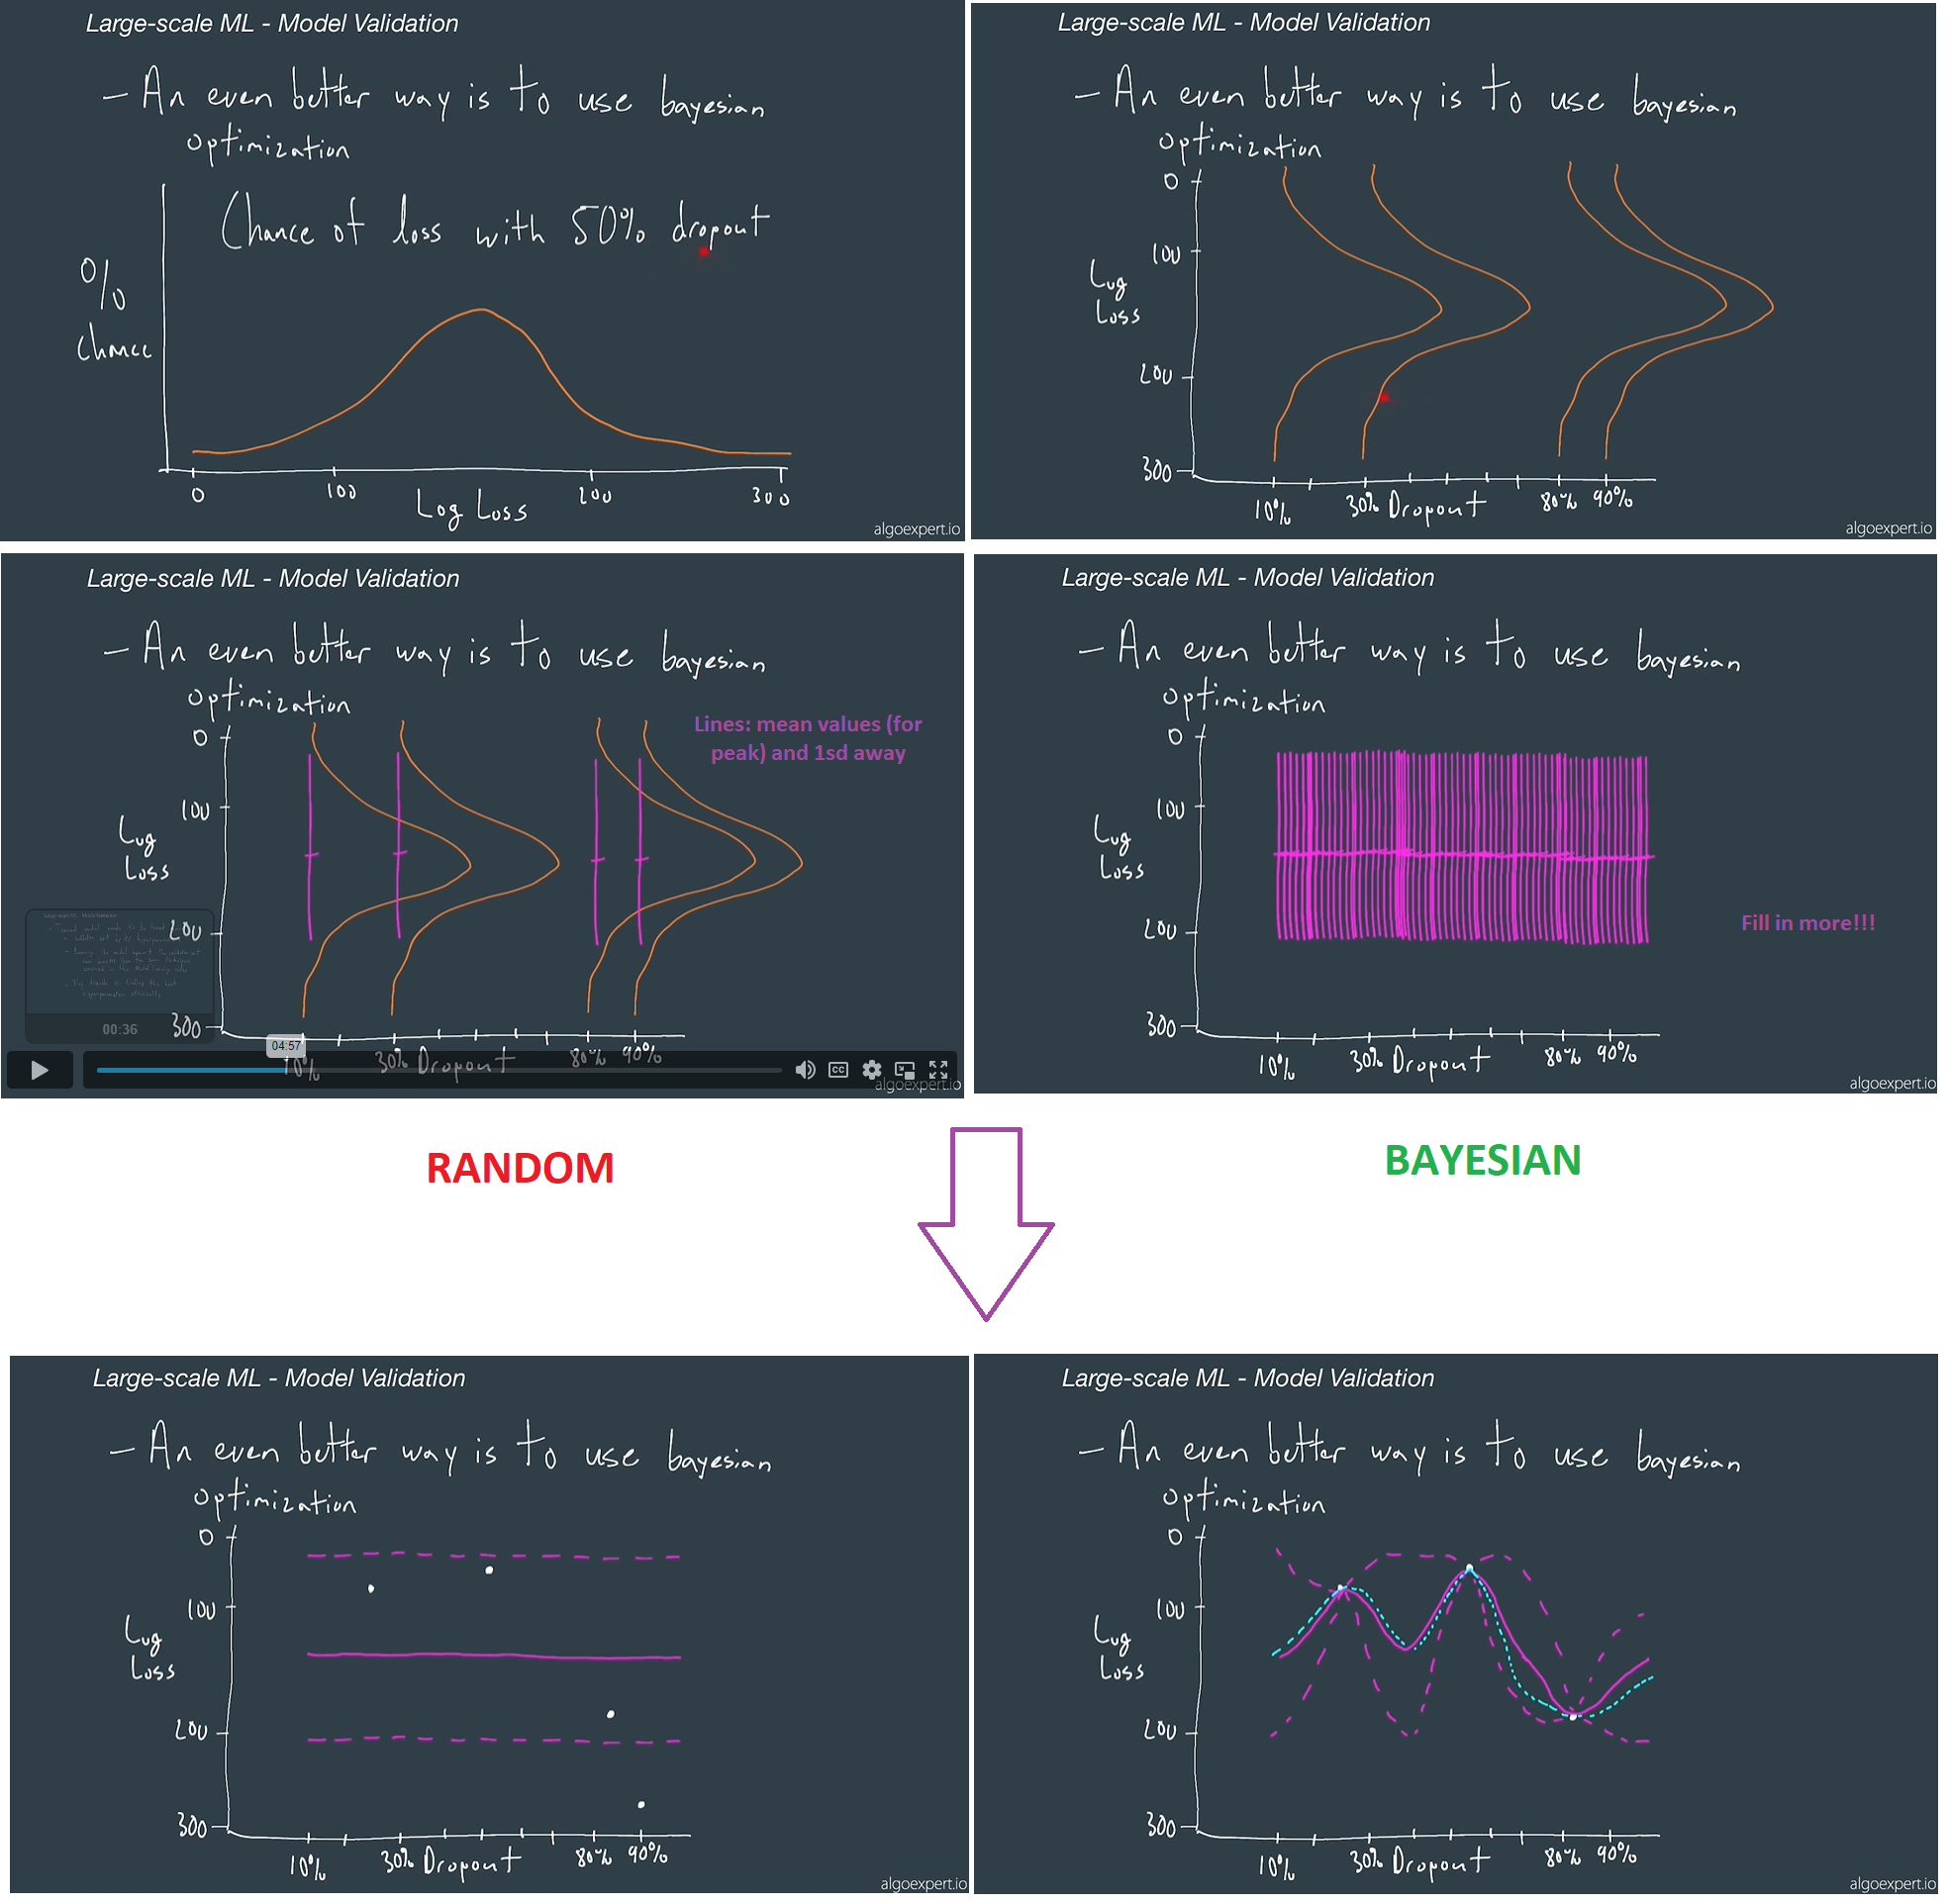 Large-scale ML - Model Validation
- An even better way is to use bayesian
optimization
Chance of loss with 50% dropout
%
Chance
0 100 200 300
Log Loss
algoexpert.io
Large-scale ML - Model Validation
- An even better way is to use bayesian
optimization
0
100
Log
Loss
200
300
10% 30% Dropout 80% 90%
algoexpert.io
Large-scale ML - Model Validation
- An even better way is to use bayesian
optimization
Lines: mean values (for
peak) and 1sd away
0
100
Log
Loss
200
300
00:36
04:57
10% 30% Dropout 80% 90%
CC
algoexpert.io
Large-scale ML - Model Validation
- An even better way is to use bayesian
optimization
0
100
Log
Loss
200
Fill in more!!!
300
10% 30% Dropout 80% 90%
algoexpert.io
RANDOM
BAYESIAN
Large-scale ML - Model Validation
- An even better way is to use bayesian
optimization
0
100
Log
Loss
200
300
10% 30% Dropout 80% 90%
algoexpert.io
Large-scale ML - Model Validation
- An even better way is to use bayesian
optimization
0
100
Log
Loss
200
300
10% 30% Dropout 80% 90%
algoexpert.io